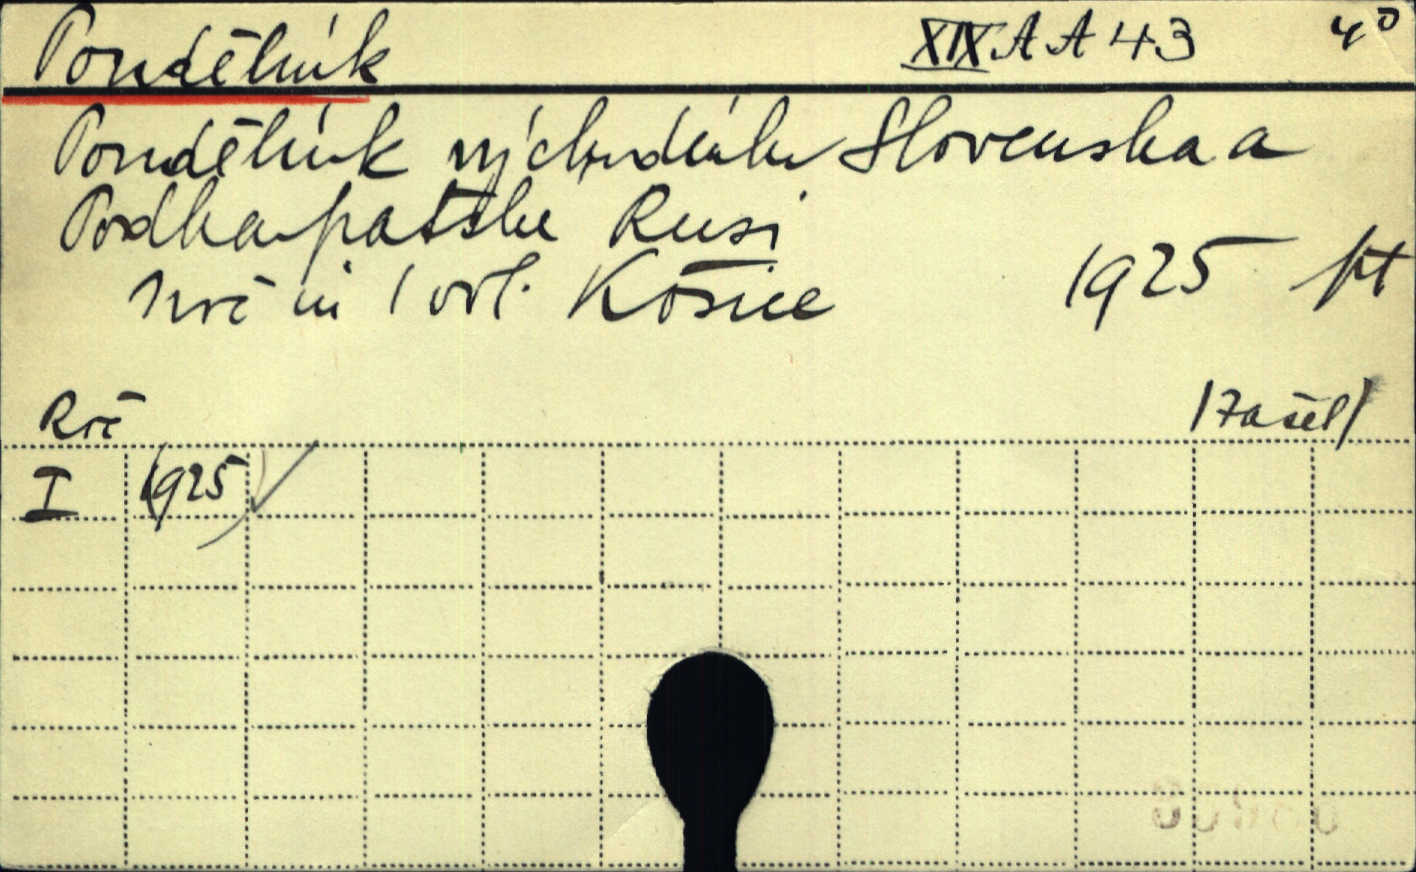 Pondělník XIX A A 43 4°
Pondělník východního Slovenska a
Podkarpatske Rusi
Košice 1925 pt
Roč /zašel/
I 1925